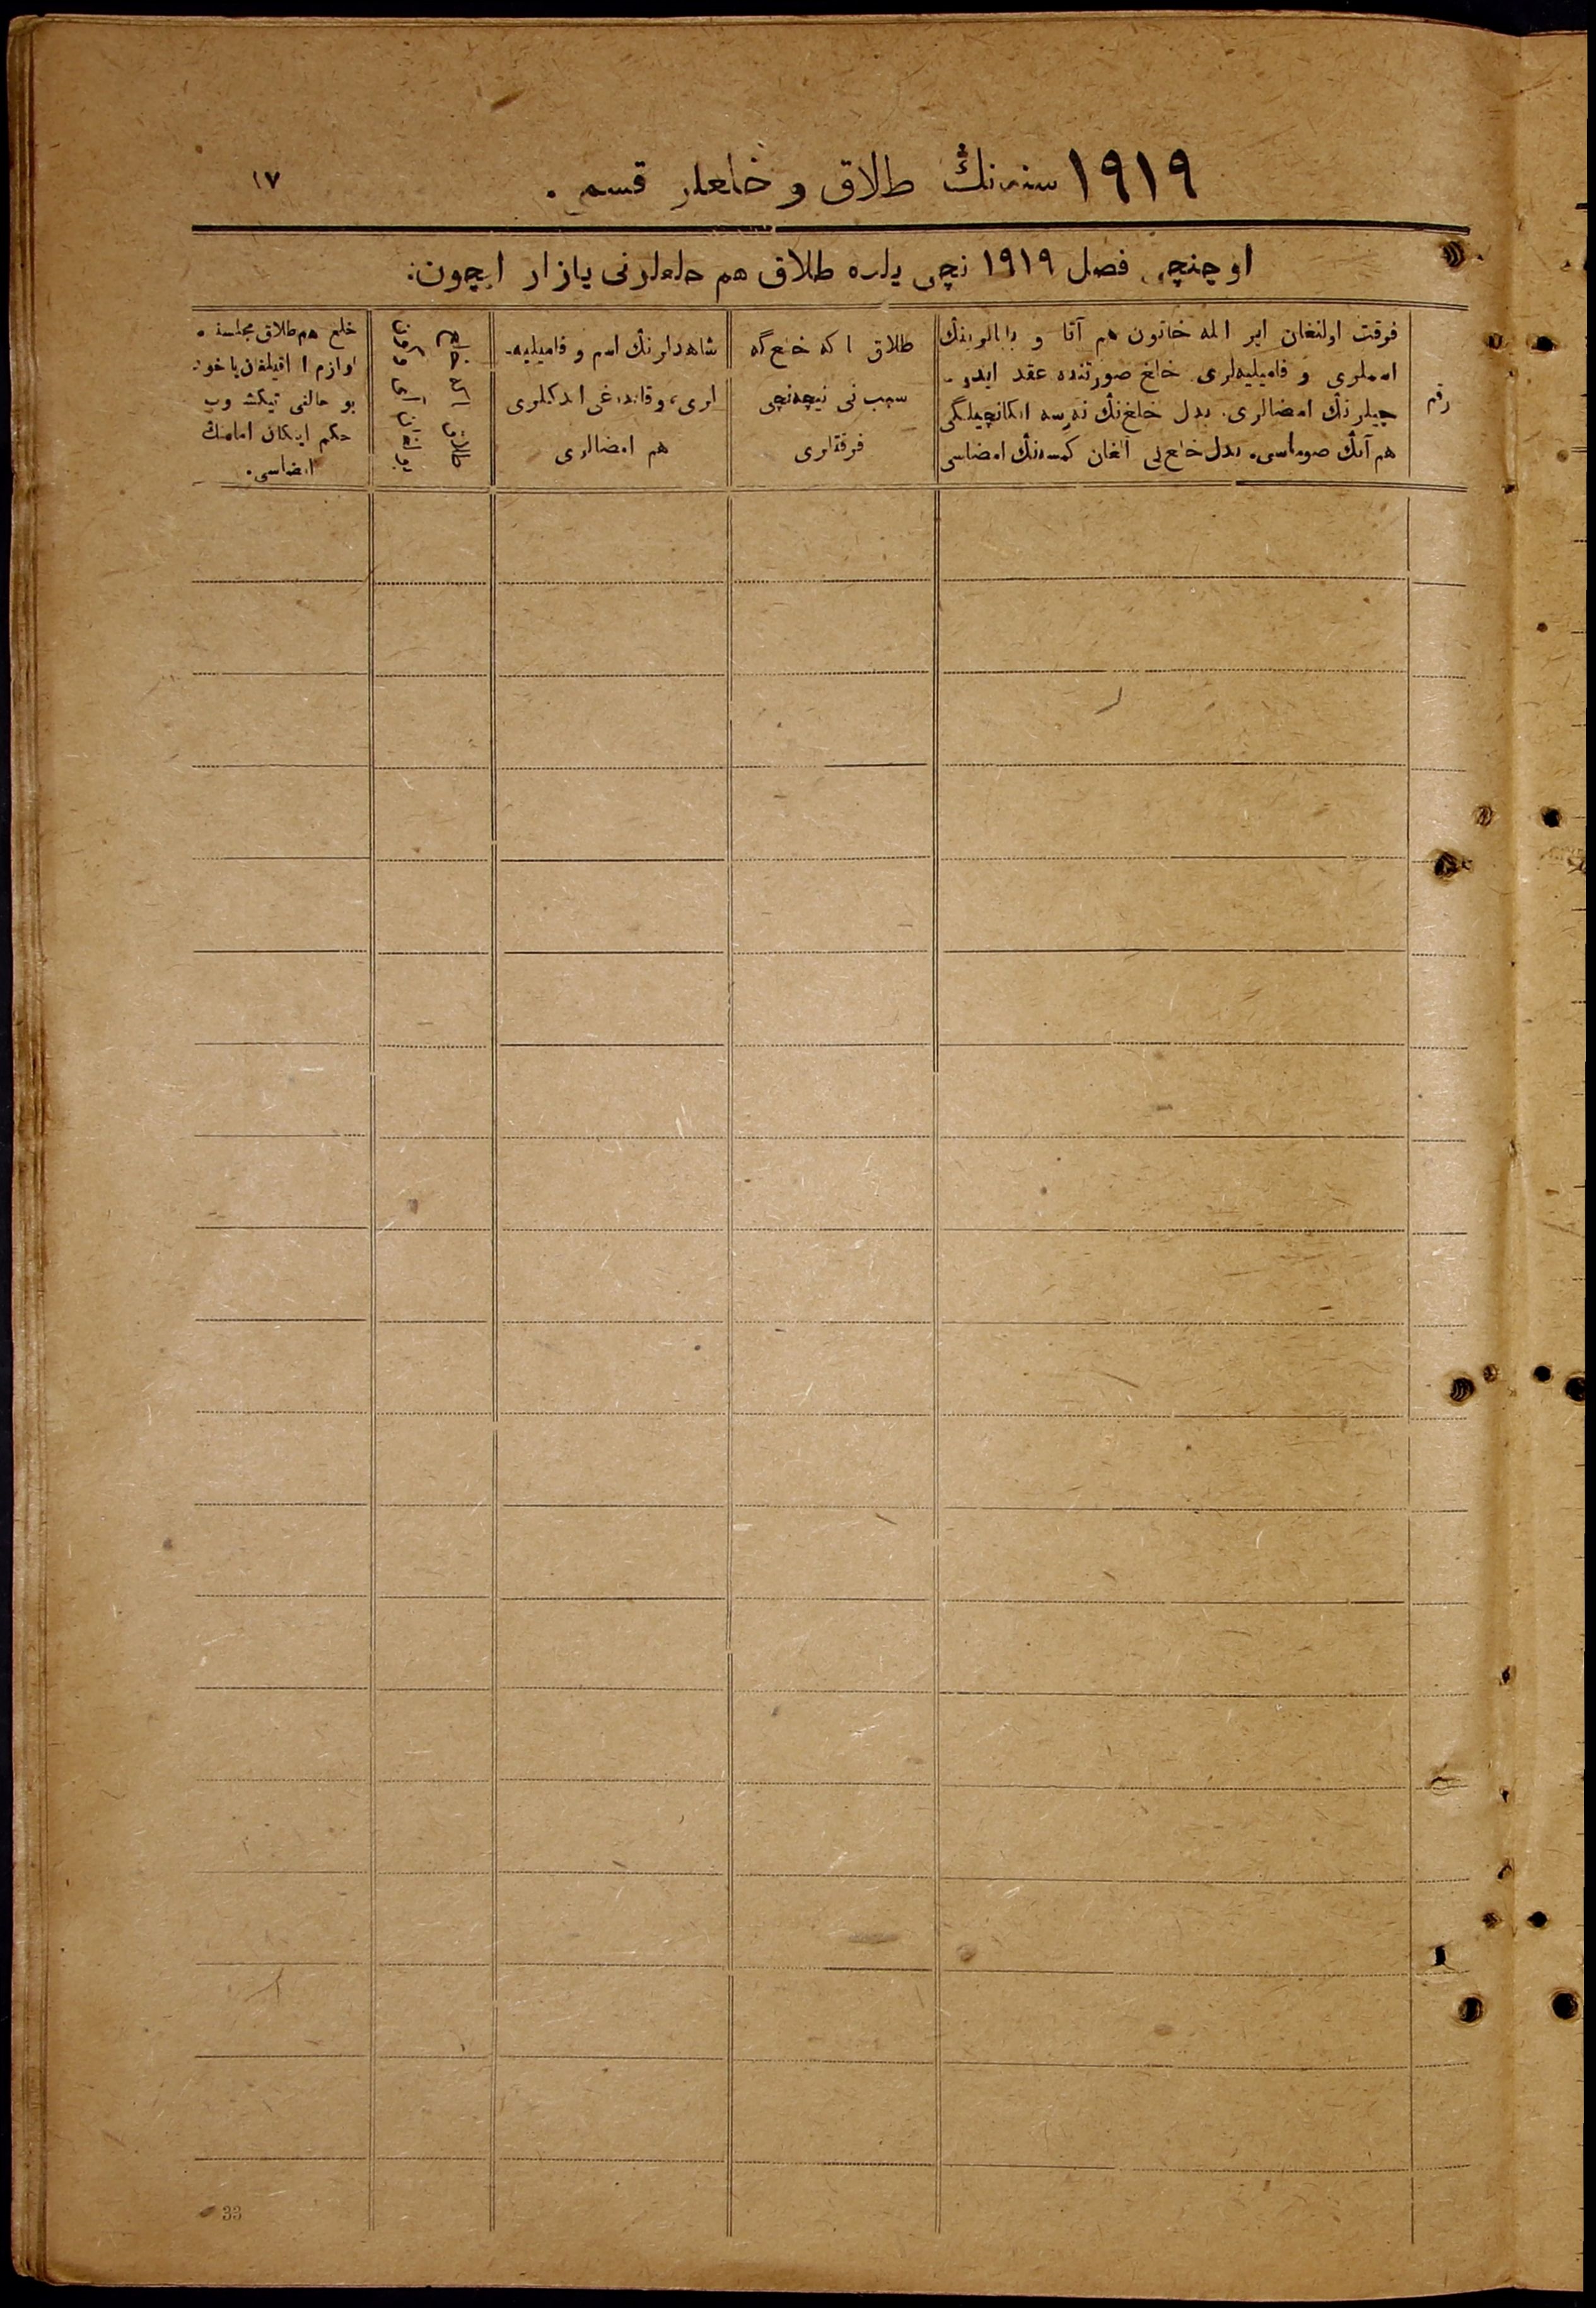 ١٩١٩ سنه‌نڭ طلاق و خلعلر قسمی .
١٧
اوچنچی فصل ١٩١٩ نچی یلده طلاق هم خلعلرنی یازار ایچون:
رقم
فرقت اولنغان ایر ایله خاتون هم آتا و بابالرینڭ
اسملری و فامیلیه‌لری. خلع صورتنده عقد ایدو-
چیلرنڭ امضالری. بدل خلع‌نڭ نه‌رسه ایکانچیلگی
هم آنڭ صوماسی. بدل خلع‌نی آلغان کمسه‌نڭ امضاسی
طلاق یاکه خلع‌گه
سبب نی نیچه‌نچی
فرقتلری
شاهدلرنڭ اسم و فامیلیه-
لری، و قایداغی ایدکلری
هم امضالری
طلاق یاکه خلع
بولغان آی و کون
خلع هم طلاق مجلسنده
بو حالنی تیکشروب
حکم ایتکان امامنڭ
امضاسی.
33